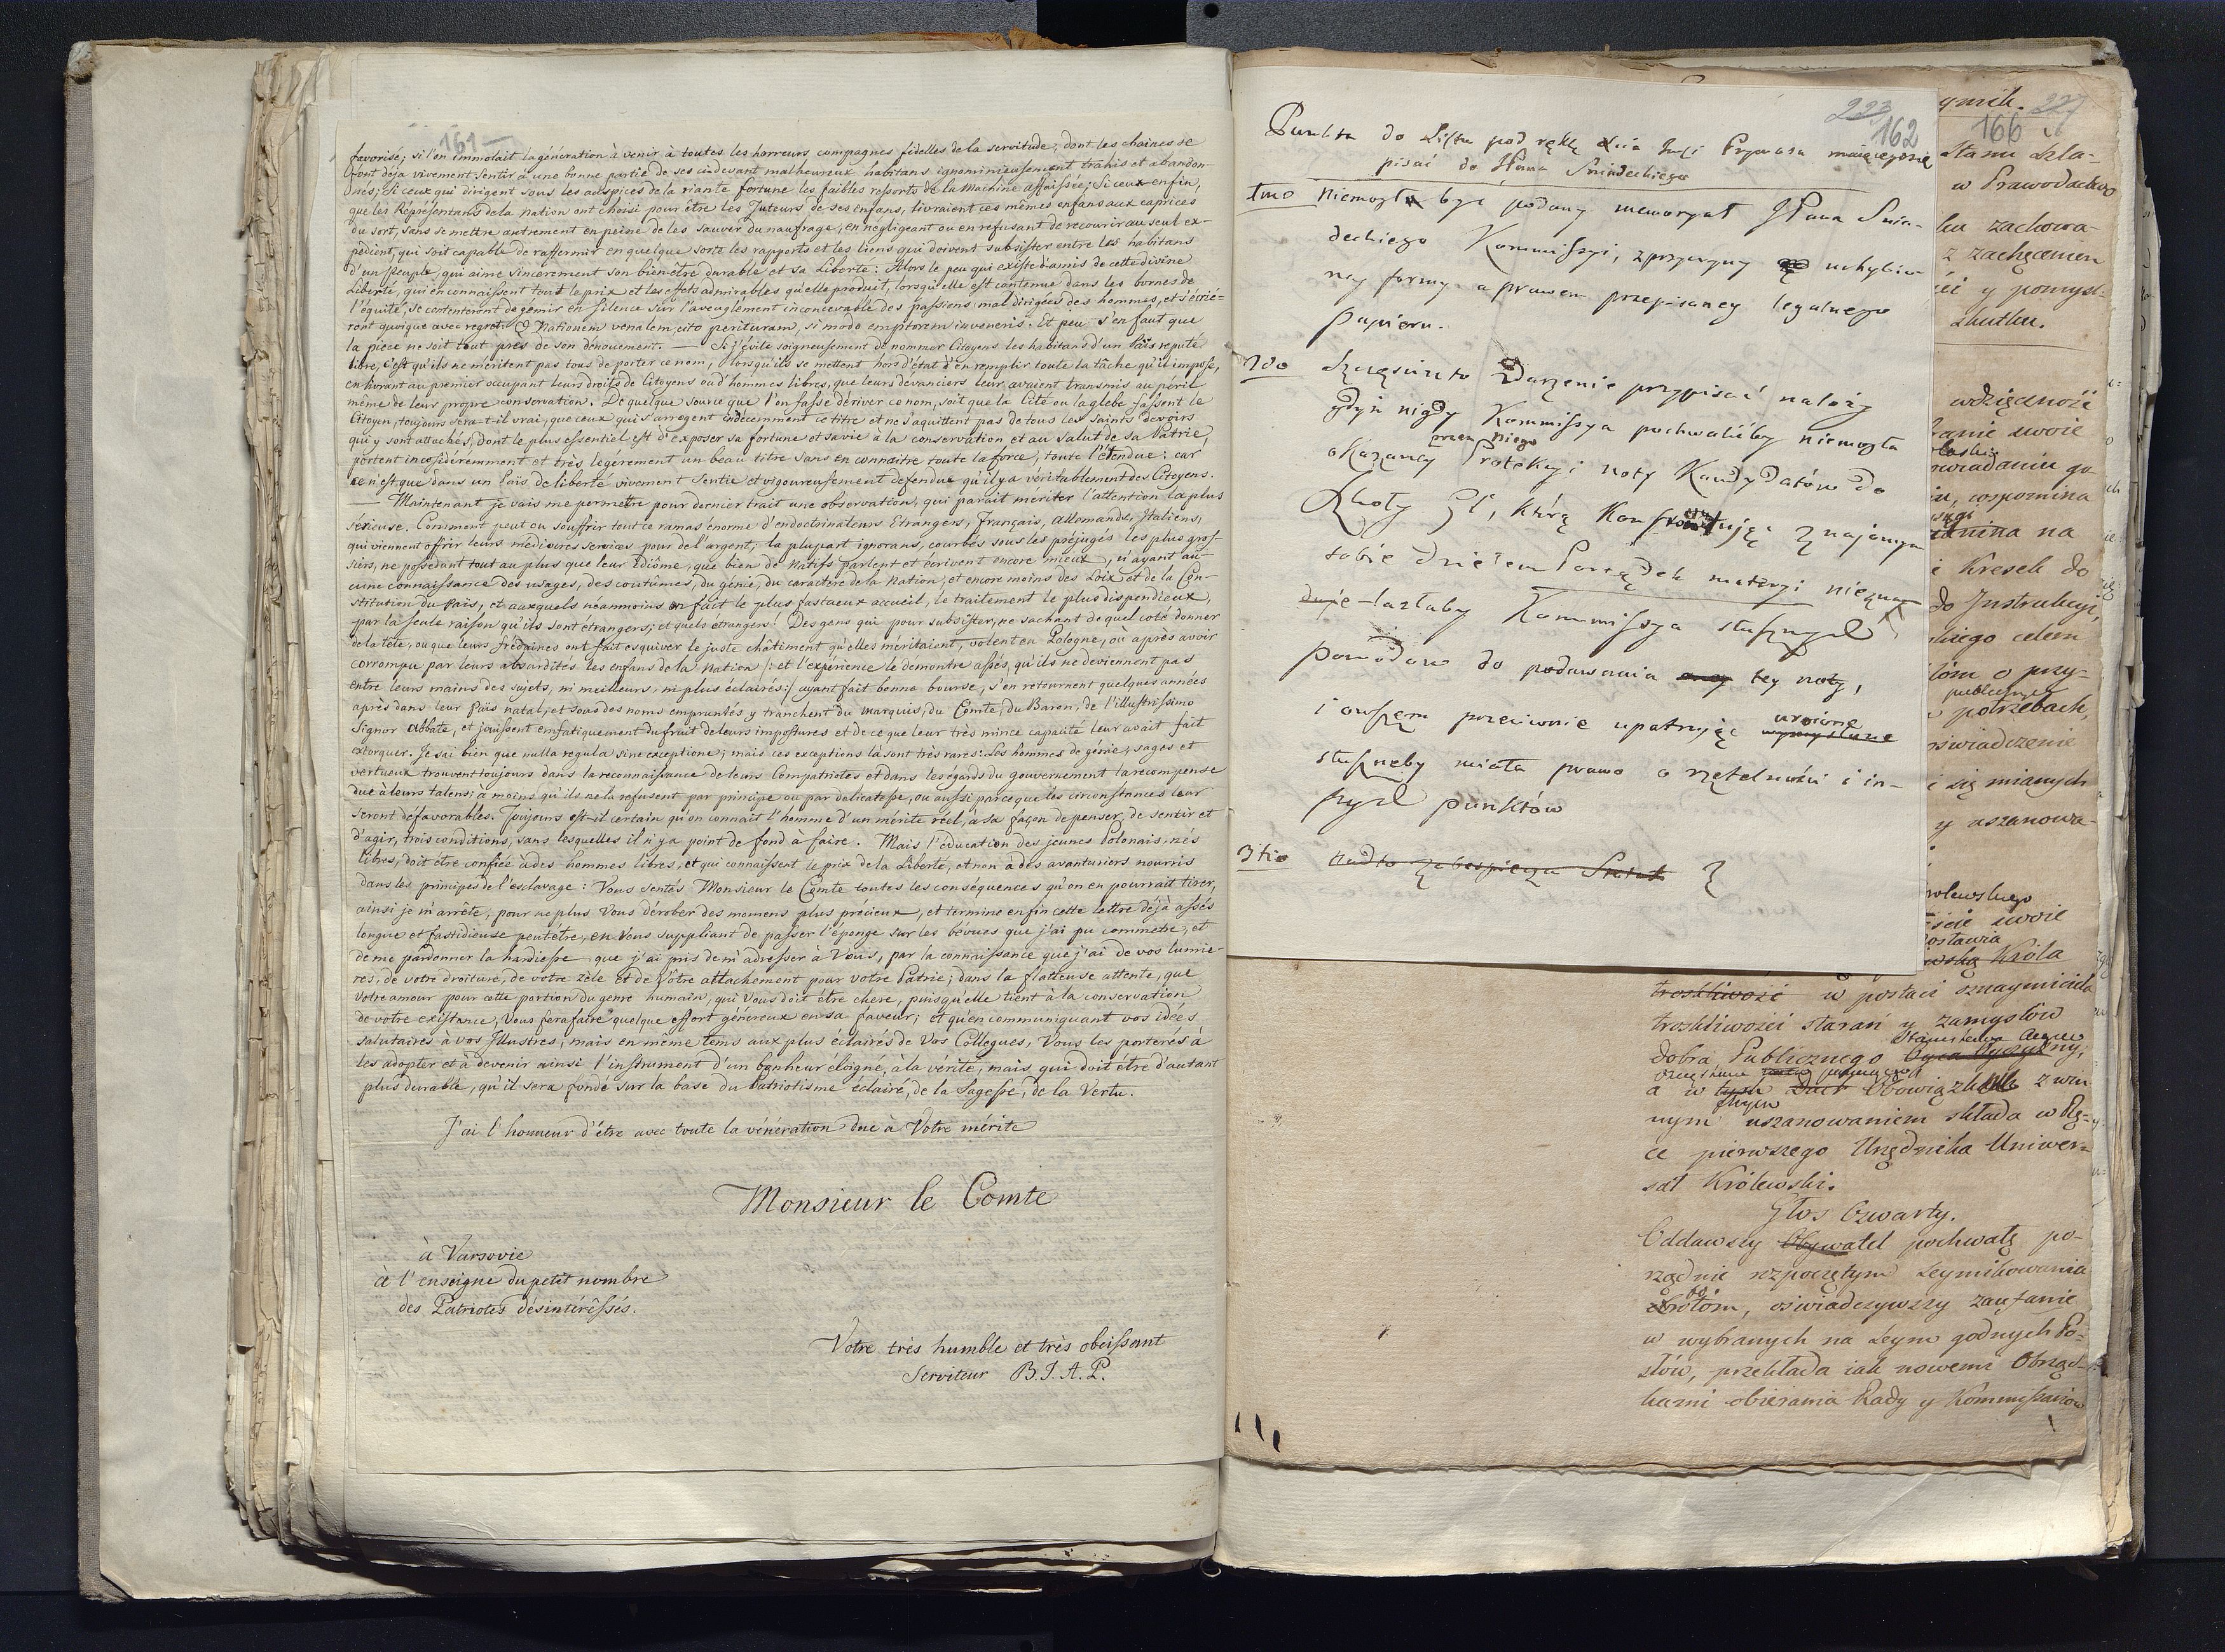 161-
favorisé; si l'on immolait la génération à venir à toutes les horreurs compagnes fidelles de la servitude, dont les chaines se
font deja vivement sentir à une bonne partie de ses cidevant malheureux habitans ignominieusement trahis et abandon-
dnés; Si ceux qui dirigent sous les auspices de la riante fortune les faibles ressorts de la Machine affaissée; Si ceux enfin,
que les Répresentans de la nation ont choisi pour être les Tuteurs de ses enfans, livraient ces mêmes enfans aux caprices
du sort, sans se mettre autrement en peine de les sauver du naufrage, en negligeant ou en refusant de recourir au seul ex-
pédient, qui soit capable de raffermir en quelque sorte les rapports et les liens qui doivent subsister entre les habitans
d'un peuple, qui aime sincerement son bien-être durable et sa Liberté: Alors le peu qui existe d'amis de cette divine
Liberté, qui en connaissent tout le prix et les effets admirables qu'elle produit, lorsqu'elle est contenue dans les bornes de
l'équité, se contenteront de gémir en silence sur l'aveuglément inconcevable des passions mal dirigées des hommes, et s'écrié-
ront quoique avec regret. O Nationem venalem, cito perituram, si modo emptorem inveneris. Et peu s'en faut que
la pièce ne soit tout près de son dénouement. — Si j'évite soigneusement de nommer Citoyens les habitans d'un Païs reputé
libre, c'est qu'ils ne méritent pas tous de porter ce nom, lorsqu'ils se mettent hors d'état d'en remplir toute la tâche qu'il impose,
en livrant au premier occupant leurs droits de Citoyens ou d'hommes libres, que leurs dévanciers leur avaient transmis au péril
même de leur propre conservation. De quelque source que l'on fasse dériver ce nom, soit que la Cité ou la glebe fassent le
Citoyen, toujours sera-t-il vrai, que ceux qui s'arrogent indécemment ce titre et ne s'aquittent pas de tous les saints devoirs
qui y sont attachés, dont le plus essentiel est d'exposer sa fortune et sa vie à la conservation et au salut de sa Patrie,
portent inconsidéremment et très légérement un beau titre sans en connaitre toute la force, toute l'étendue: car
ce n'est que dans un Païs de liberté vivement sentie et vigoureusement defendue qu'il y a véritablement des Citoyens.
— Maintenant je vais me permettre pour dernier trait une observation, qui parait meriter l'attention la plus
sérieuse. Comment peut on souffrir tout ce ramas énorme d'endoctrinateurs Etrangers, Français, Allemands, Italiens,
qui viennent offrir leurs médiocres services pour de l'argent; la plupart ignorans, courbés sous les préjugés les plus gros-
siers, ne possedant tout au plus que leur Idiôme, que bien de Natifs parlent et écrivent encore mieux, n'ayant au-
cune connaissance des usages, des coutûmes, du génie, du caractère de la Nation, et encore moins des Loix et de la Con-
stitution du Païs, et auxquels néanmoins on fait le plus fastueux accueil, le traitement le plus dispendieux,
par la seule raison qu'ils sont étrangers; et quels etrangers! Des gens qui pour subsister, ne sachant de quel coté donner
de la tête, ou que leurs frédaines ont fait esquiver le juste châtiment qu'elles méritaient, volent en Pologne, où après avoir
corrompu par leurs absurdités les enfans de la Nation /: et l'expérience le demontre assés, qu'ils ne deviennent pas
entre leurs mains des sujets, ni meilleurs, ni plus éclairés :/ ayant fait bonne bourse, s'en retournent quelques années
après dans leur Païs natal, et sous des noms empruntés y tranchent du Marquis, du Comte, du Baron, de l'illustrissimo
Signor Abbate, et jouissent emfatiquement du fruit de leurs impostures et de ce que leur très mince capacité leur avait fait
extorquer. Je sai bien que nulla regula sine exceptione; mais ces exceptions là sont très rares: Les hommes de génie, sages et
vertueux trouvent toujours dans la reconnaissance de leurs Compatriotes et dans les égards du gouvernement la recompense
due à leurs talens; à moins qu'ils ne la refusent par principe ou par delicatesse, ou aussi parceque les circonstances leur
seront défavorables. Toujours est-il certain qu'on connait l'homme d'un mérite réel, à sa façon de penser, de sentir et
d'agir, trois conditions, sans lesquelles il n'y a point de fond à faire. Mais l'éducation des jeunes Polonais, nés
libres, doit être confiée à des hommes libres, et qui connaissent le prix de la Liberté, et non à des avanturiers nourris
dans les principes de l'esclavage: Vous sentés Monsieur le Comte toutes les conséquences qu'on en pourrait tirer,
ainsi je m'arrête, pour ne plus Vous dérober des momens plus précieux, et termine enfin cette lettre déjà assés
longue et fastidieuse peutêtre, en Vous suppliant de passer l'éponge sur les bévues que j'ai pu commetre, et
de me pardonner la hardiesse que j'ai pris de m'adresser à Vous, par la connaissance que j'ai de vos lumie-
res, de votre droiture, de votre zèle et de Vôtre attachement pour votre Patrie; dans la flatteuse attente, que
votre amour pour cette portion du genre humain, qui Vous doit être chere, puisqu'elle tient à la conservation
de votre existance, Vous fera faire quelque effort généreux en sa faveur; et qu'en communiquant vos idées
salutaires à vos Illustres, mais en même tems aux plus éclairés de Vos Collegues, Vous les porterés à
les adopter et à devenir ainsi l'instrument d'un bonheur éloigné, à la vérité, mais qui doit être d'autant
plus durable, qu'il sera fondé sur la base du Patriotisme éclairé, de la Sagesse, de la Vertu.
J'ai l'honneur d'être avec toute la vénération due à Votre mérite
Monsieur le Comte
à Varsovie
à l'enseigne du petit nombre
des Patriotes désintéressés.
Votre très humble et très obeissant
Serviteur B. J. A. P.
223
162
Punkta do Listu pod rękę Xcia Jmci Prymasa
pisać do JPana Sniadeckiego
1mo niemogł być podany memoryał JPana Snia-
deckiego Kommissyi, z przyczyny uchybio-
ney formy a prawem przepisaney legalnego
papieru.
2do Szczęściu to Zdarzenie przypisać należy
gdyż nigdy Kommissya pochwaliéby niemogła
okazaney przez niego Protekcyi noty Kandydatów do
Szkoły Gł, którą
sobie Porządek materyi
-laztaby Kommissya słusznych
powodów do podawania tey noty,
i owszem przeciwnie upatrując urojone wymyslone
słuszneby miała prawo o rzetelności i in-
szych punktów
3tio nadto zabespiecza
ymik. 227
166
stanu szla-
w Prawodactwo
zachowa-
z zachęceniem
y pomysl-
skutku.
wdzięczność
swoie
wspomina
na
i Kresek do
do Instrukcyi,
celem
o przy-
publicznych
potrzebach,
oświadczenie
i się mianych
y uszanowa-
rolewskego
swoie
Króla
troskliwość w postaci oznaymiciela
troskliwości starań y zamysłów
dobra Publicznego Oyca Oyczyzny,
a w Obowiązku z win
nym uszanowaniem składa w Rę-
ce pierwszego Urzędnika Uniwer-
sał Królewski.
Głos Czwarty.
Oddawszy Obywatel pochwałę po-
rządnie rozpoczętym Seymikowania
krokom, oświadczywszy zaufanie
w wybranych na Seym godnych Po-
słów, przekłada iak nowemi Obrząd-
kami obierania Rady y Kommissarzow